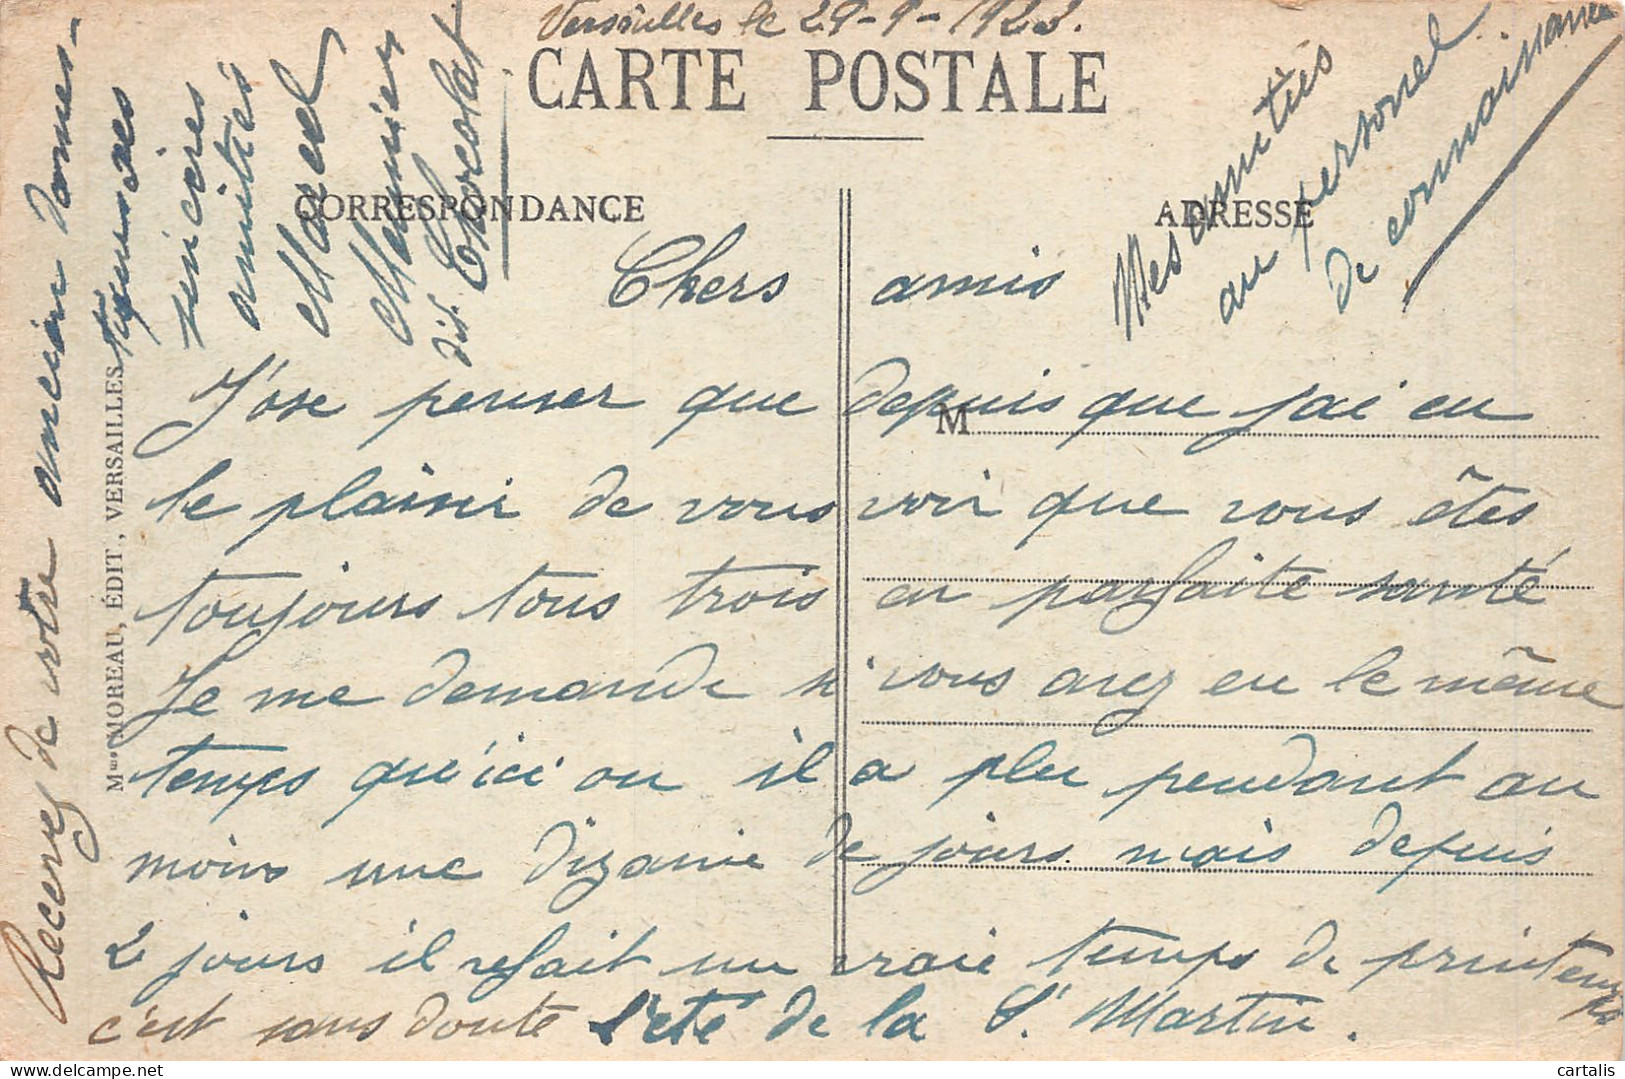 Versailles le 29-9-1923.
CARTE POSTALE
CORRESPONDANCE
ADRESSE
Chers amis
J'ose penser que depuis que j'ai eu
le plaisir de vous voir que vous êtes
toujours tous trois en parfaite santé
Je me demande si vous avez eu le même
temps qu'ici ou il a plu pendant au
moins une dizaine de jours mais depuis
2 jours il refait un vrai temps de printemps
c'est sans doute l'eté de la St Martin.
Recevez de votre ancien domes-
tique ses
sincères
amitiés
Marcel
Meunier
dit Chocolat
Mes amitiés
au personel
de connaissance
M
Mme MOREAU, ÉDIT, VERSAILLES
cartalis
delcampe.net